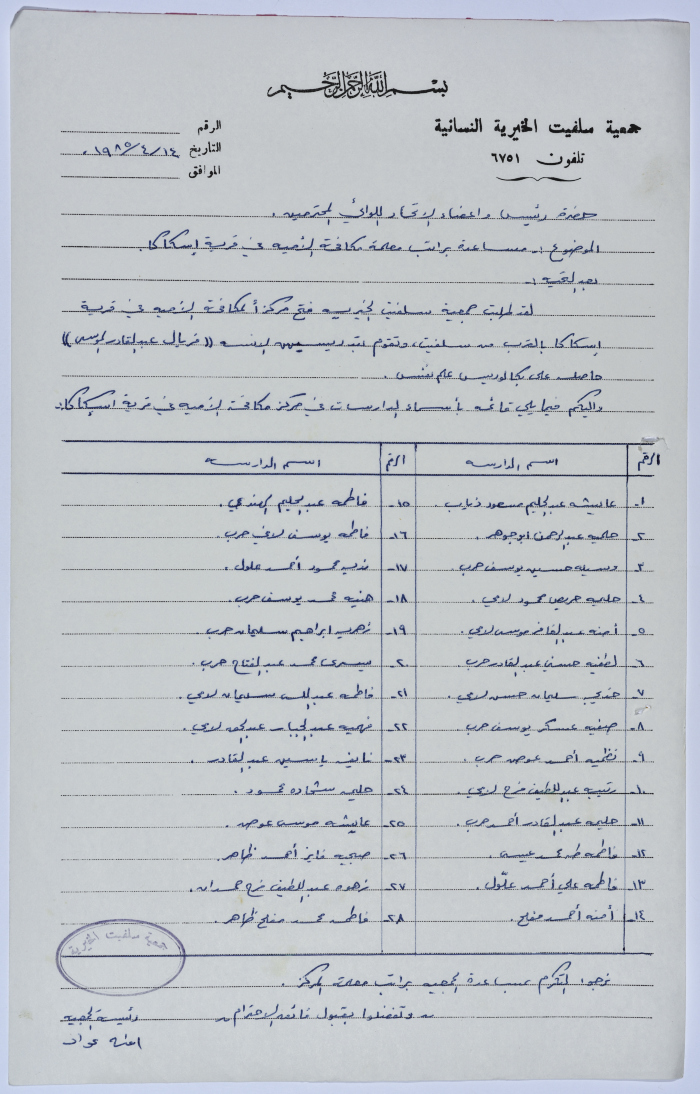 بسم الله الرحمن الرحيم
جمعية سلفيت الخيرية النسائية
تلفون ٦٧٥١
الرقم
التاريخ ١٩٨٥/٤/١٤
الموافق
حضرة رئيس واعضاء الاتحاد اللوائي المحترمين.
الموضوع :ـ مساعدة براتب معلمة مكافحة الاميه في قرية إسكاكا.
بعد التحيه :ـ
لقد طلبت جمعية سلفيت الخيريه فتح مركز لمكافحة الاميه في قرية
إسكاكا بالقرب من سلفيت، وتقوم بتدريسهن الانسه ((فريال عبد القادر))
حاصله على بكالوريس علم نفس.
واليكم فيما يلي قائمه بأسماء الدارسات في مركز مكافحة الاميه في قرية اسكاكا:
الرقم اسم الدارسه الرقم اسم الدارسه
١ـ عائيشه عبد الحليم مسعود ذياب. ١٥ـ فاطمه عبد الحليم
٢ـ حلميه عبد الرحمن ابو جوهر. ١٦ـ فاطمه يوسف لافي حرب.
٣ـ وسيله حسين يوسف حرب. ١٧ـ محمود أحمد علول.
٤ـ حليمه محمود لامي. ١٨ـ هنيه محمد يوسف حرب.
٥ـ أمنه عبد القادر موسى لامي. ١٩ـ ابراهيم سليمان حرب.
٦ـ لطفيه حسني عبد القادر حرب. ٢٠ـ يسرى محمد عبد الفتاح حرب.
٧ـ سليمان حسن لامي. ٢١ـ فاطمه سليمان لامي.
٨ـ صفيه عسكر يوسف حرب ٢٢ـ فهميه عبد الجبار عبد الحق لامي.
٩ـ نظميه أحمد عوض حرب. ٢٣ـ نايفه ياسين عبد القادر.
١٠ـ رتيبه عبد اللطيف فرج لامي. ٢٤ـ حليمه شحاده محمود.
١١ـ حليمه عبد القادر أحمد حرب. ٢٥ـ عائيشه موسى عوض.
١٢ـ فاطمه محمد عيسى. ٢٦ـ صبحيه فايز أحمد ظاهر.
١٣ـ فاطمه علي أحمد علّول. ٢٧ـ زهوه عبد اللطيف فرج حمدان.
١٤ـ أمنه أحمد مفلح. ٢٨ـ فاطمه محمد مفلح ظاهر.
جمعية سلفيت الخيرية
نرجوا التكرم بمساعدة الجمعيه براتب معلمة المركز.
ـ وتفضلوا بقبول فائق الاحترام ـ
رئيسة الجمعيه
امنه عواد